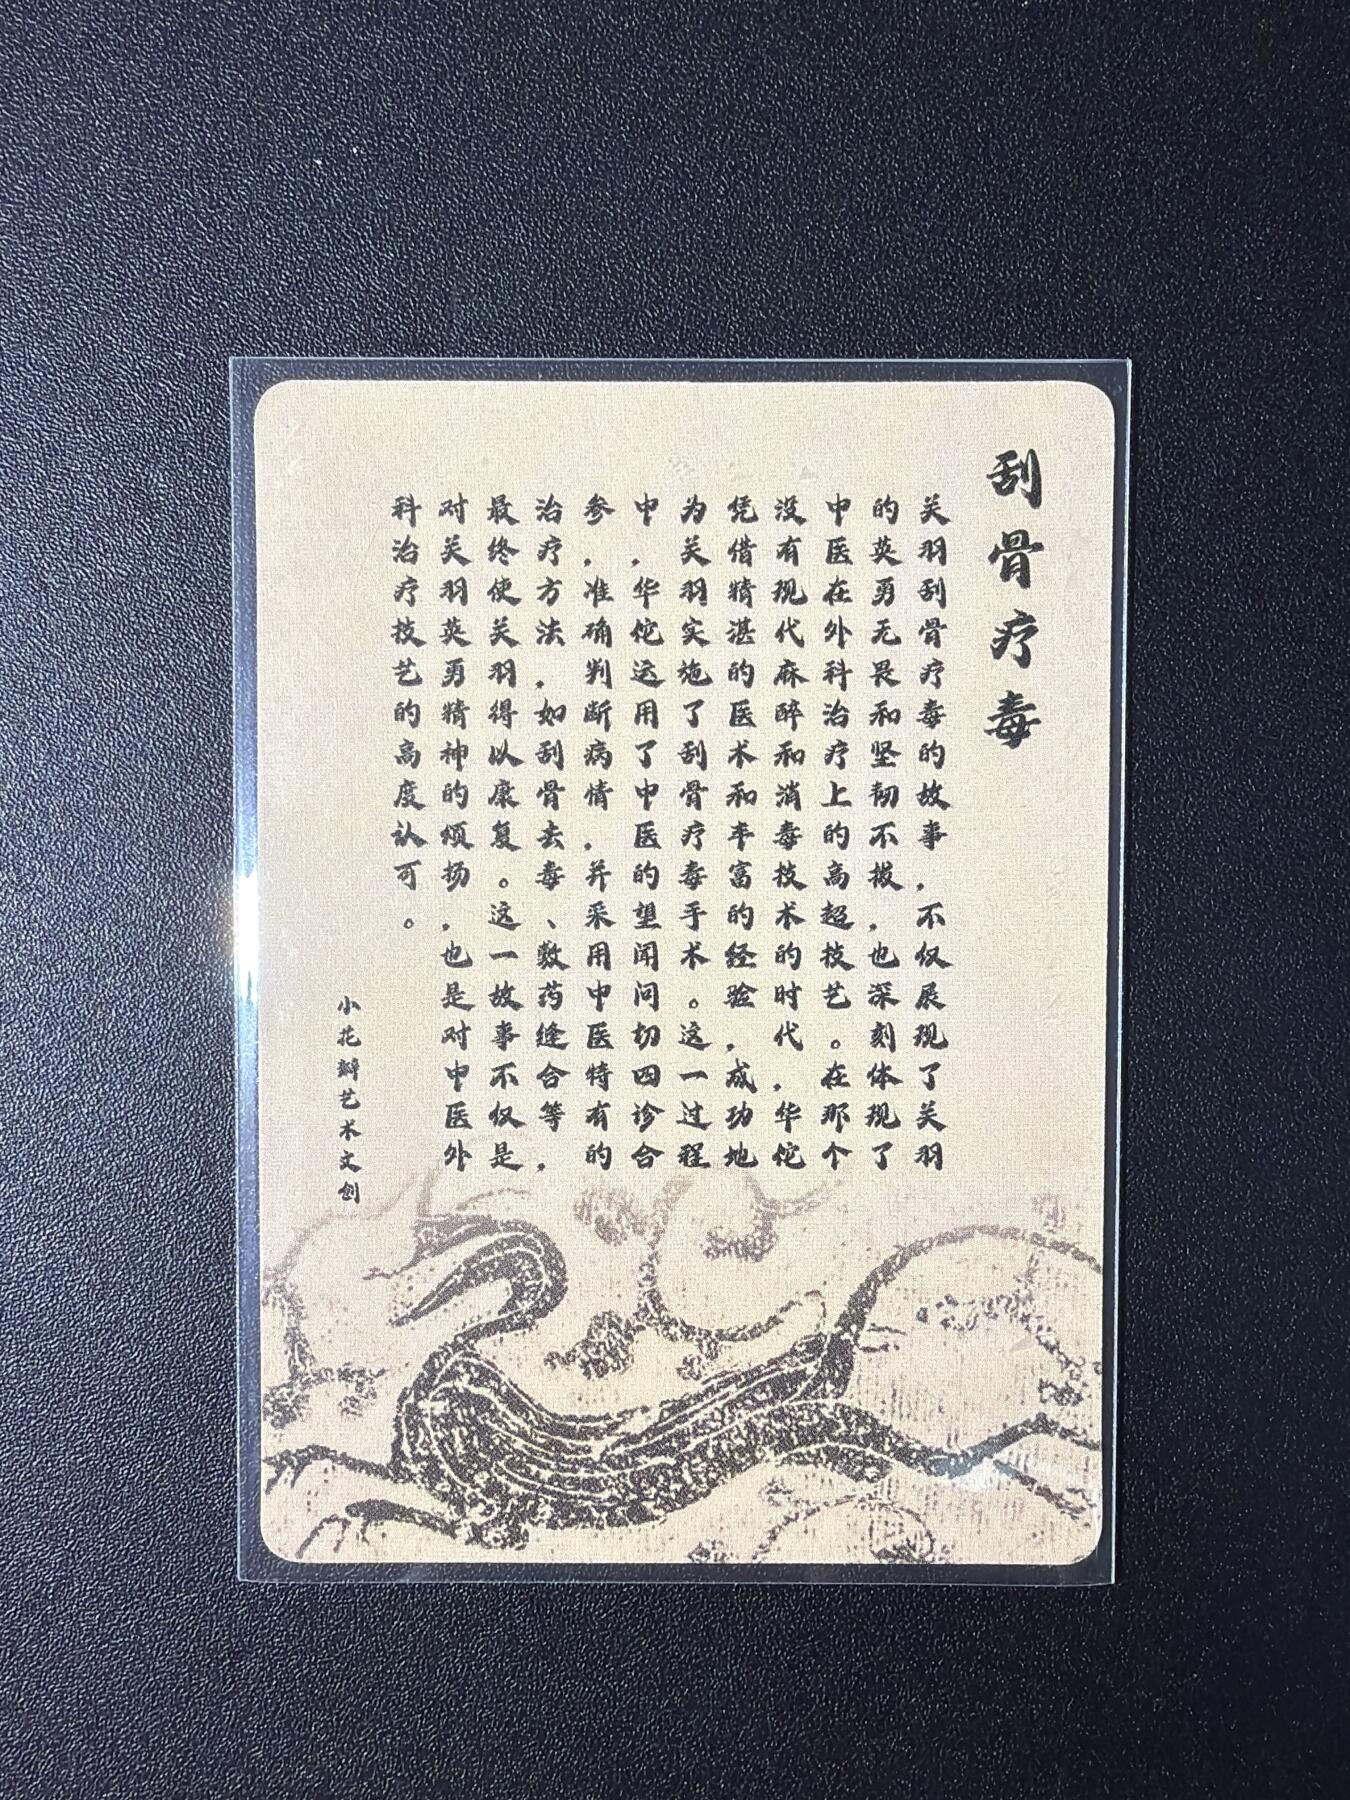 刮骨疗毒
关羽刮骨疗毒的故事，不仅展现了关羽
的英勇无畏和坚韧不拔，也深刻体现了
中医在外科治疗上的高超技艺。在那个
没有现代麻醉和消毒技术的时代，华佗
凭借精湛的医术和丰富的经验，成功地
为关羽实施了刮骨疗毒手术。这一过程
中，华佗运用了中医的望闻问切四诊合
参，准确判断病情，并采用中医特有的
治疗方法，如刮骨去毒、敷药缝合等，
最终使关羽得以康复。这一故事不仅是
对关羽英勇精神的颂扬，也是对中医外
科治疗技艺的高度认可。
小花瓣艺术文创